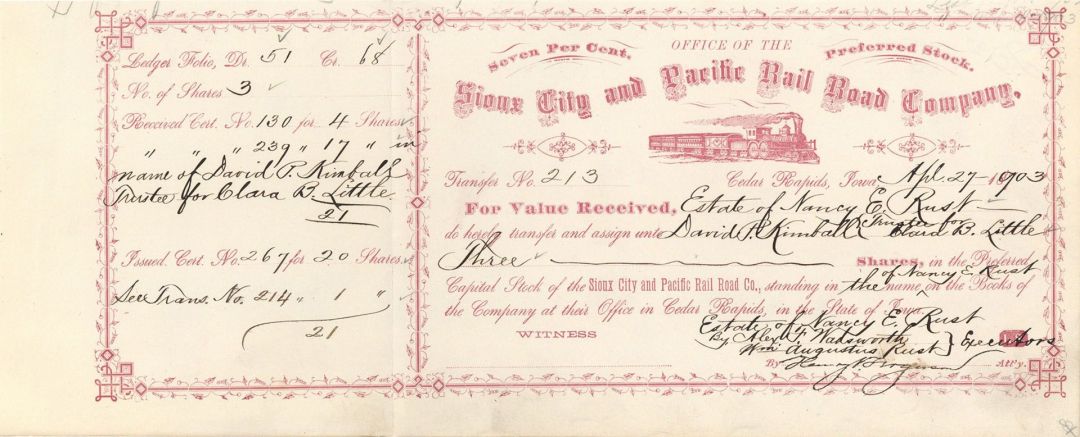 Ledger Folio, Dr. 51 Cr. 68
No. of Shares 3
Received Cert. No. 130 for 4 Shares
" " " 239 " 17 " in
name of David P. Kimball
Trustee for Clara B. Little
21
Issued Cert. No. 267 for 20 Shares.
See Trans. No. 214 " 1 "
21
Seven Per Cent. OFFICE OF THE Preferred Stock.
Sioux City and Pacific Rail Road Company.
Transfer No. 213 Cedar Rapids, Iowa, Apl. 27 - 1903
For Value Received, Estate of Nancy E. Rust
do hereby transfer and assign unto David P. Kimball Trustee for Clara B. Little
Three Shares, in the Preferred
Capital Stock of the Sioux City and Pacific Rail Road Co., standing in the name of Nancy E. Rust on the Books of
the Company at their Office in Cedar Rapids, in the State of Iowa.
WITNESS
Estate of Nancy E. Rust
By Alex F. Wadsworth
Wm Augustus Rust } Executors
By Henry Att'y.